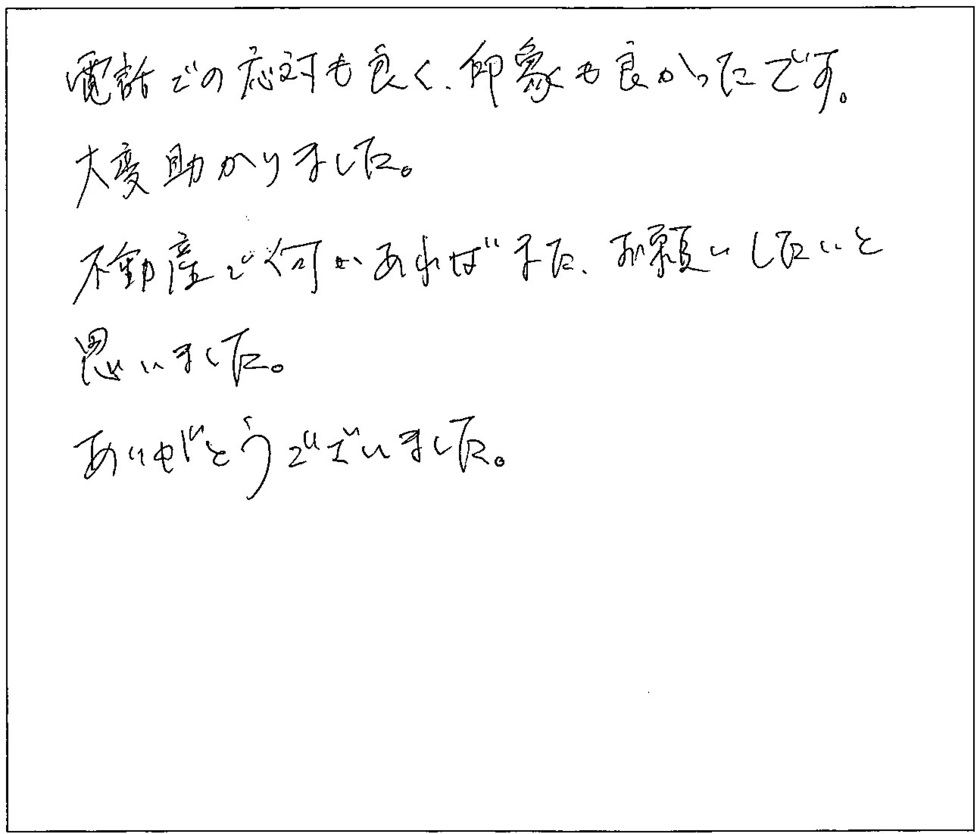 電話での応対も良く、印象も良かったです。
大変助かりました。
不動産で何かあればまた、お願いしたいと
思いました。
ありがとうございました。